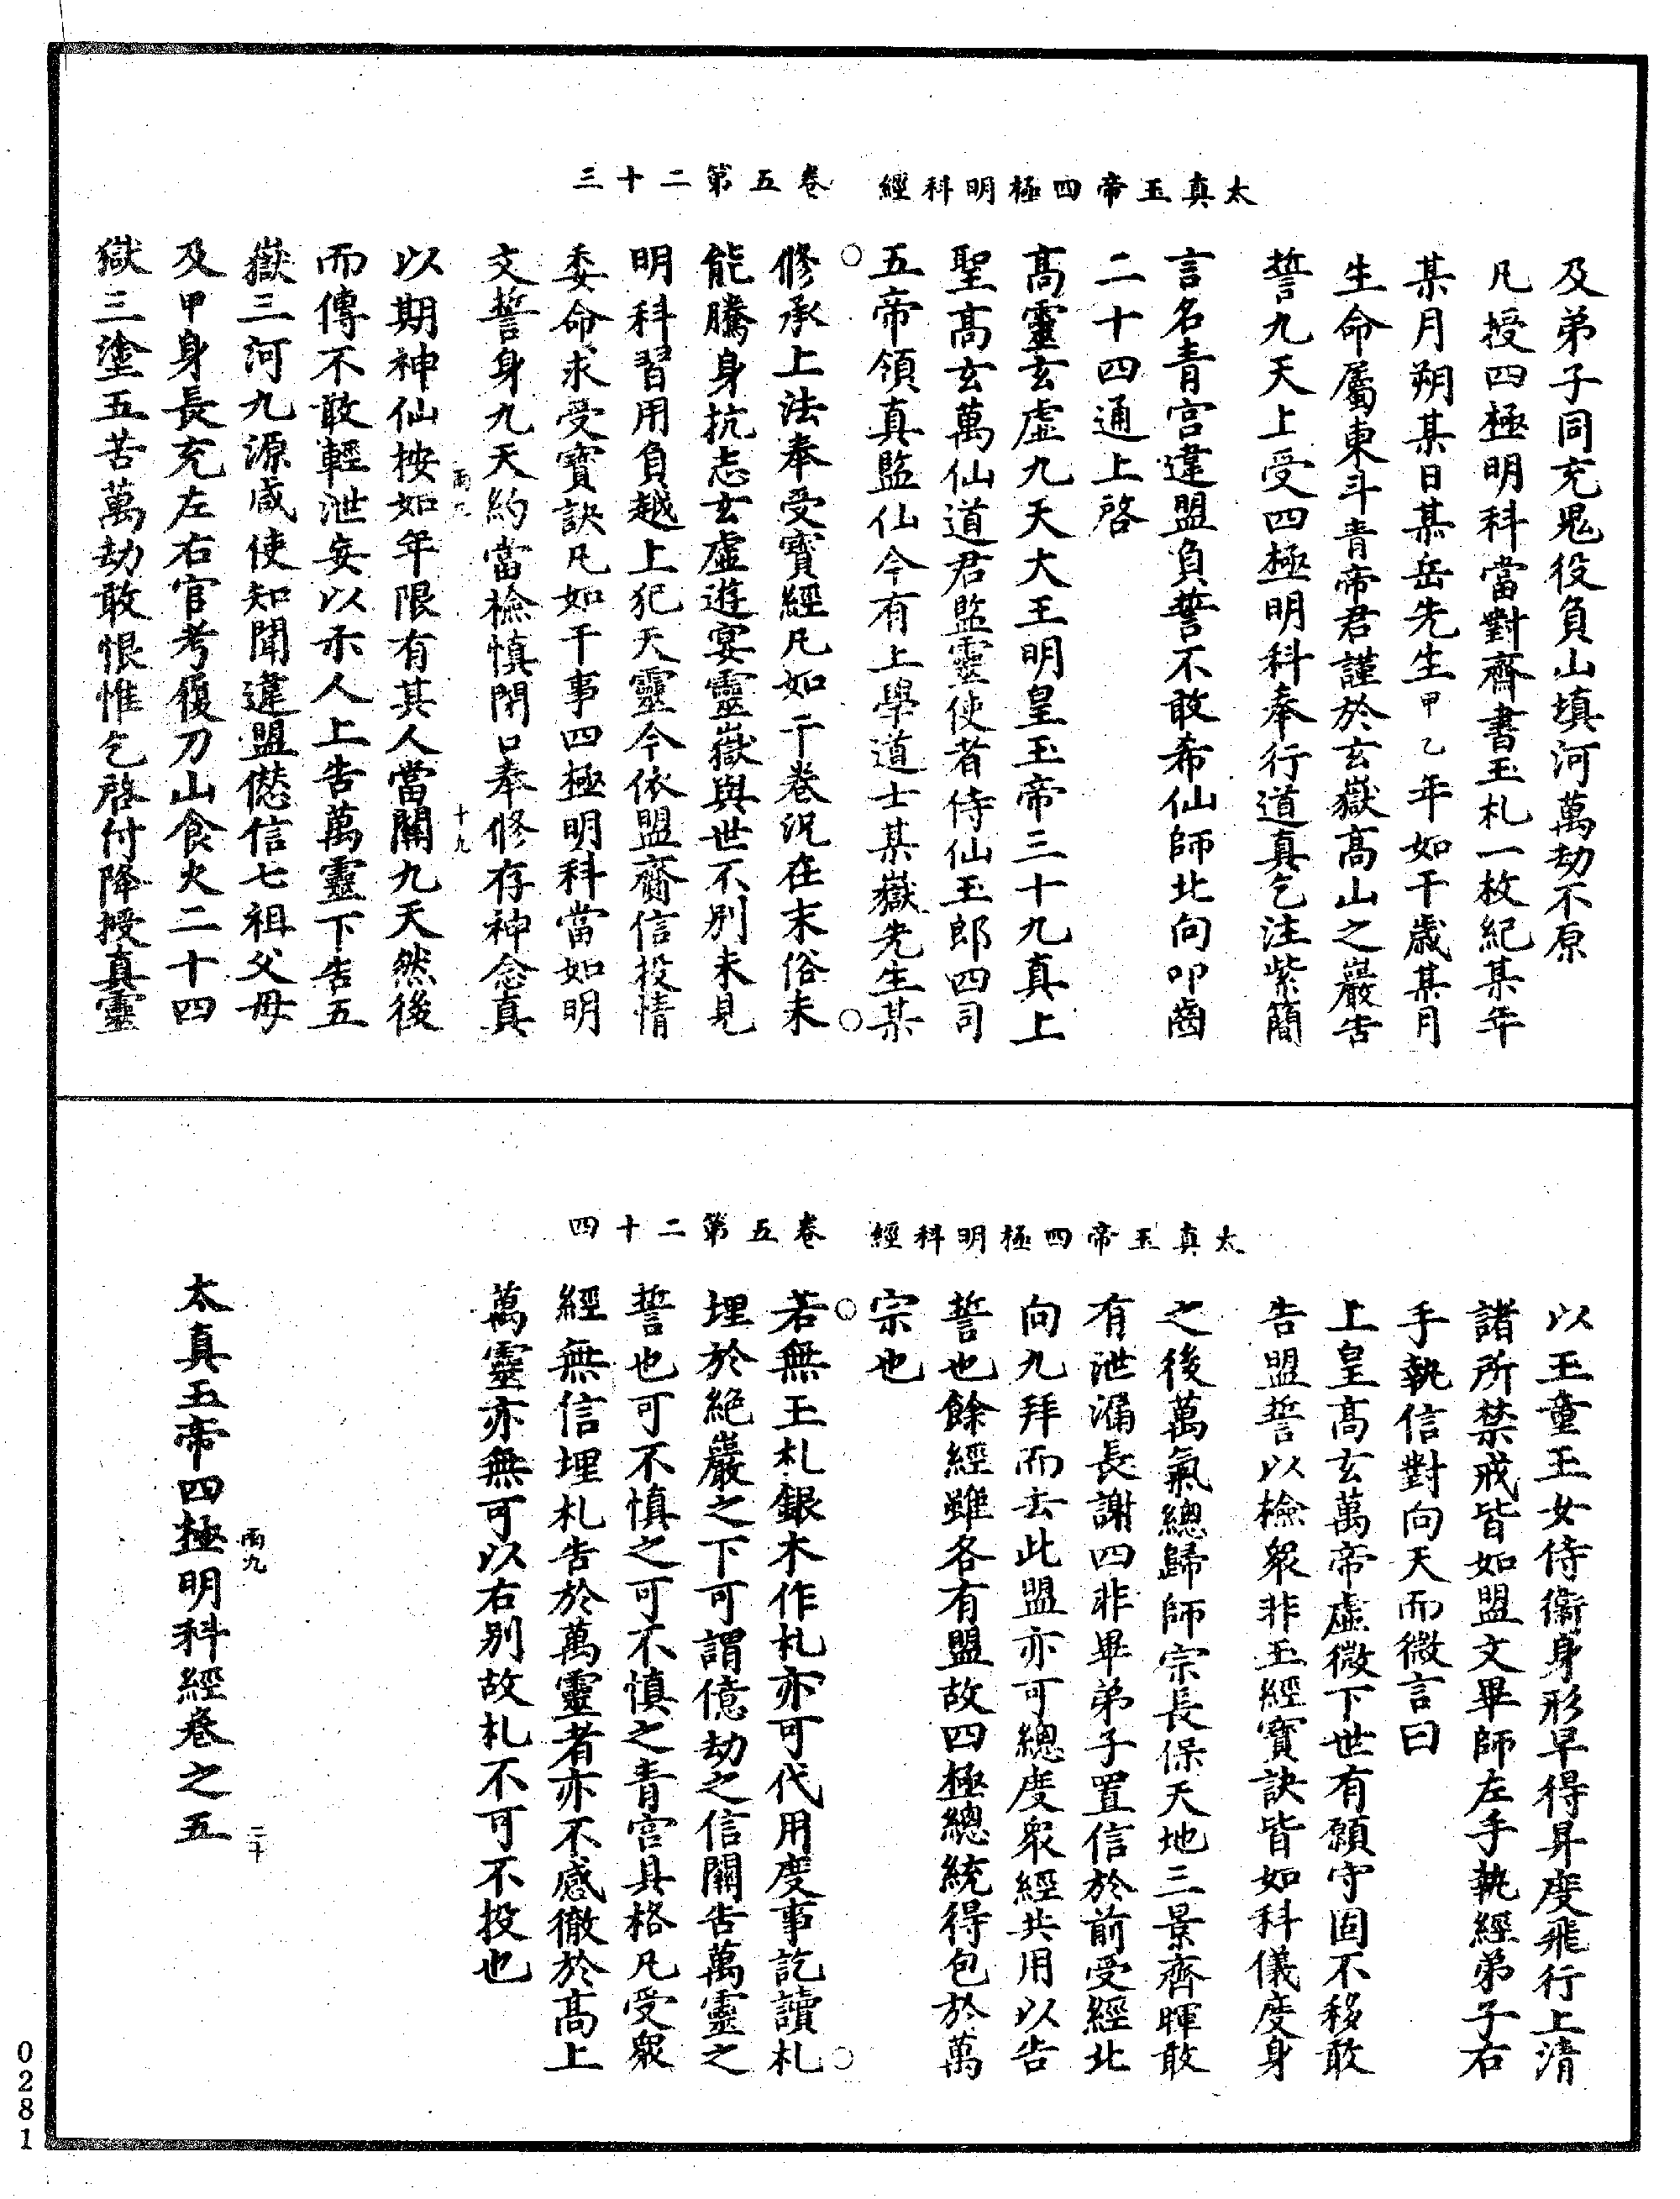 太真玉帝四極明科經　卷五第二十三
及弟子同充鬼役負山填河萬劫不原
凡授四極明科當對齋書玉札一枚紀某年
某月朔某日某岳先生甲乙年如干歲某月
生命屬東斗青帝君謹於玄嶽高山之巖告
誓九天上受四極明科奉行道真乞注紫簡
言名青宮違盟負誓不敢希仙師北向叩齒
二十四通上啓
高靈玄虛九天大王明皇玉帝三十九真上
聖高玄萬仙道君監靈使者侍仙玉郎四司
五帝領真監仙今有上學道士某嶽先生某
修承上法奉受寶經凡如干卷況在末俗未
能騰身抗志玄虛遊宴靈嶽與世不別未見
明科習用負越上犯天靈今依盟齎信投情
委命求受寶訣凡如干事四極明科當如明
文誓身九天約當檢慎閉口奉修存神念真
雨九　十九
以期神仙按如年限有其人當關九天然後
而傳不敢輕泄妄以示人上告萬靈下告五
嶽三河九源咸使知聞違盟愆信七祖父母
及甲身長充左右官考履刀山食火二十四
獄三塗五苦萬劫敢恨惟乞啓付降授真靈
太真玉帝四極明科經　卷五第二十四
以玉童玉女侍衞身形早得昇度飛行上清
諸所禁戒皆如盟文畢師左手執經弟子右
手執信對向天而微言曰
上皇高玄萬帝虛微下世有願守固不移敢
告盟誓以檢衆非玉經寶訣皆如科儀度身
之後萬氣總歸師宗長保天地三景齊暉敢
有泄漏長謝四非畢弟子置信於前受經北
向九拜而去此盟亦可總度衆經共用以告
誓也餘經雖各有盟故四極總統得包於萬
宗也
若無玉札銀木作札亦可代用度事訖讀札
埋於絕巖之下可謂億劫之信關告萬靈之
誓也可不慎之可不慎之青宮具格凡受衆
經無信埋札告於萬靈者亦不感徹於高上
萬靈亦無可以右別故札不可不投也
雨九　二十
太真玉帝四極明科經卷之五
0281